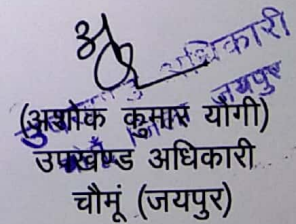 अधिकारी
जयपुर
(अशोक कुमार योगी)
उपखण्ड अधिकारी
चौमूं (जयपुर)